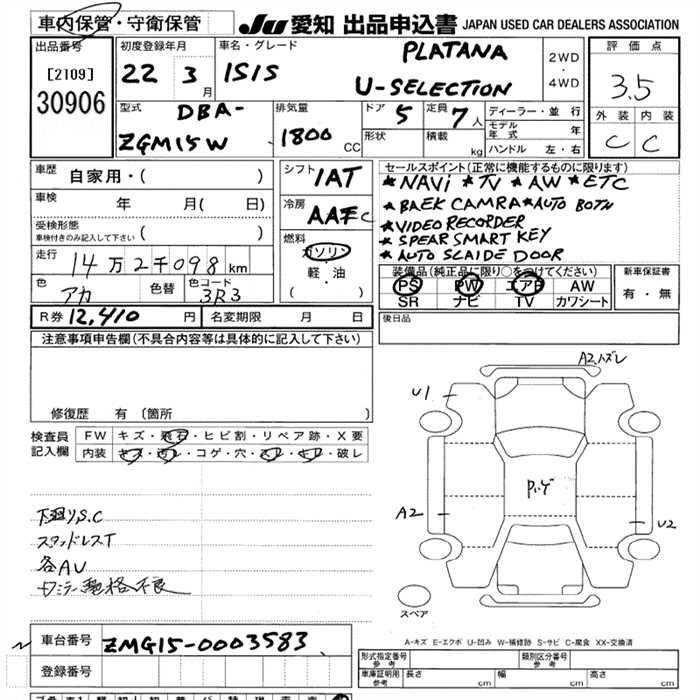 車内保管・守衛保管 JU 愛知 出品申込書 JAPAN USED CAR DEALERS ASSOCIATION
出品番号
[2109]
30906
初度登録年月
22 3月
車名・グレード
ISIS PLATANA
U-SELECTION
2WD
・
4WD
評価点
3.5
外装 内装
C C
型式
DBA-
ZGM15W
排気量
1800 CC
ドア 5 定員 7人
形状 積載 kg
ディーラー・並行
モデル年式 年
ハンドル 左・右
車歴
自家用・( )
車検 年 月( 日)
受検形態
車検付きのみ記入して下さい ( )
走行 14万2千098km
色 アカ 色替 色コード 3R3
シフト 1AT
冷房 AAC
燃料
ガソリン
軽・油
( )
セールスポイント(正常に機能するものに限ります)
★NAVi ★TV ★AW ★ETC
★BAEK CAMRA★AUTO BOTH
★VIDEO RECORDER
★SPEAR SMART KEY
★AUTO SLAIDE DOOR
装備品(純正品に限り○をつけてください) 新車保証書
PS PW エアB AW 有・無
SR ナビ TV カワシート
R券 12,410円 名変期限 月 日
後日品
注意事項申告欄(不具合内容等は具体的に記入して下さい)
修復歴 有 (箇所 )
検査員記入欄
FW キズ・飛石・ヒビ割・リペア跡・X要
内装 キズ・汚レ・コゲ・穴・スレ・キレ・破レ
下廻りS.C
スタッドレスT
各AU
A2ハズレ
U1
Pハゲ
A2
U2
スペア
A-キズ E-エクボ U-凹み W-補修跡 S-サビ C-腐食 XX-交換済
車台番号 ZMG15-0003583
登録番号
形式指定番号 参考 類別区分番号 参考
車庫証明用 参考 長さ cm 幅 cm 高さ cm